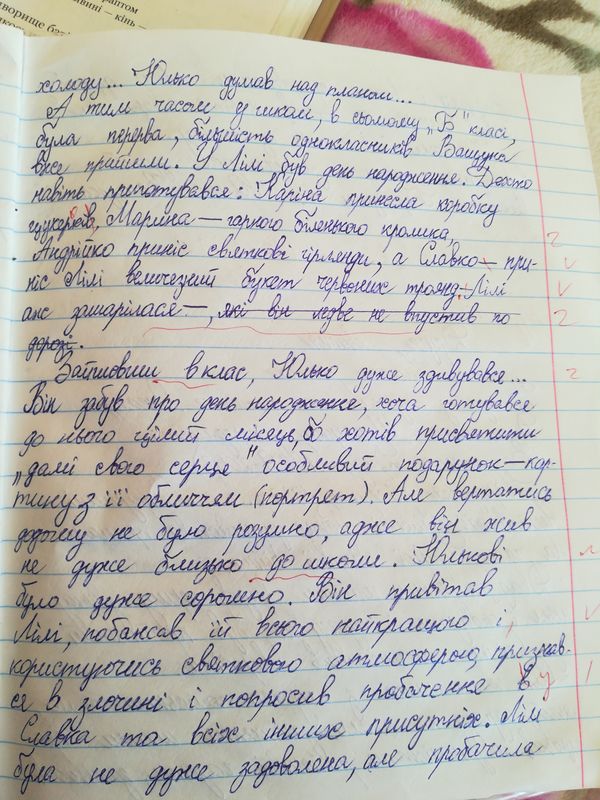 раптом
творище баг
ивині — кінь —
холоду... Юлько думав над планом...
А тим часом у школі, в сьомому „Б" класі,
була перерва, більшість однокласників Ващука
вже прийшли. У Лілі був день народження. Дехто
навіть приготувався: Каріна принесла коробку
цукерків, Марина — гарного біленького кролика,
Андрійко приніс святкові гірлянди, а Славко — при-
ніс Лілі величезний букет червоних троянд. Лілі
аж зашарілася —, які він ледве не впустив по
дорозі.
Зайшовши в клас, Юлько дуже здивувався...
Він забув про день народження, хоча готувався
до нього цілий місяць, бо хотів присвятити
„дамі свого серця" особливий подарунок — кар-
тину з її обличчям (портрет). Але вертатись
додому не було розумно, адже він жив
не дуже близько до школи. Юлькові
було дуже соромно. Він привітав
Лілі, побажав їй всього найкращого і,
користуючись святковою атмосферою, признав-
ся в злочині і попросив пробачення у
Славка та всіх інших присутніх. Лілі
була не дуже задоволена, але пробачила